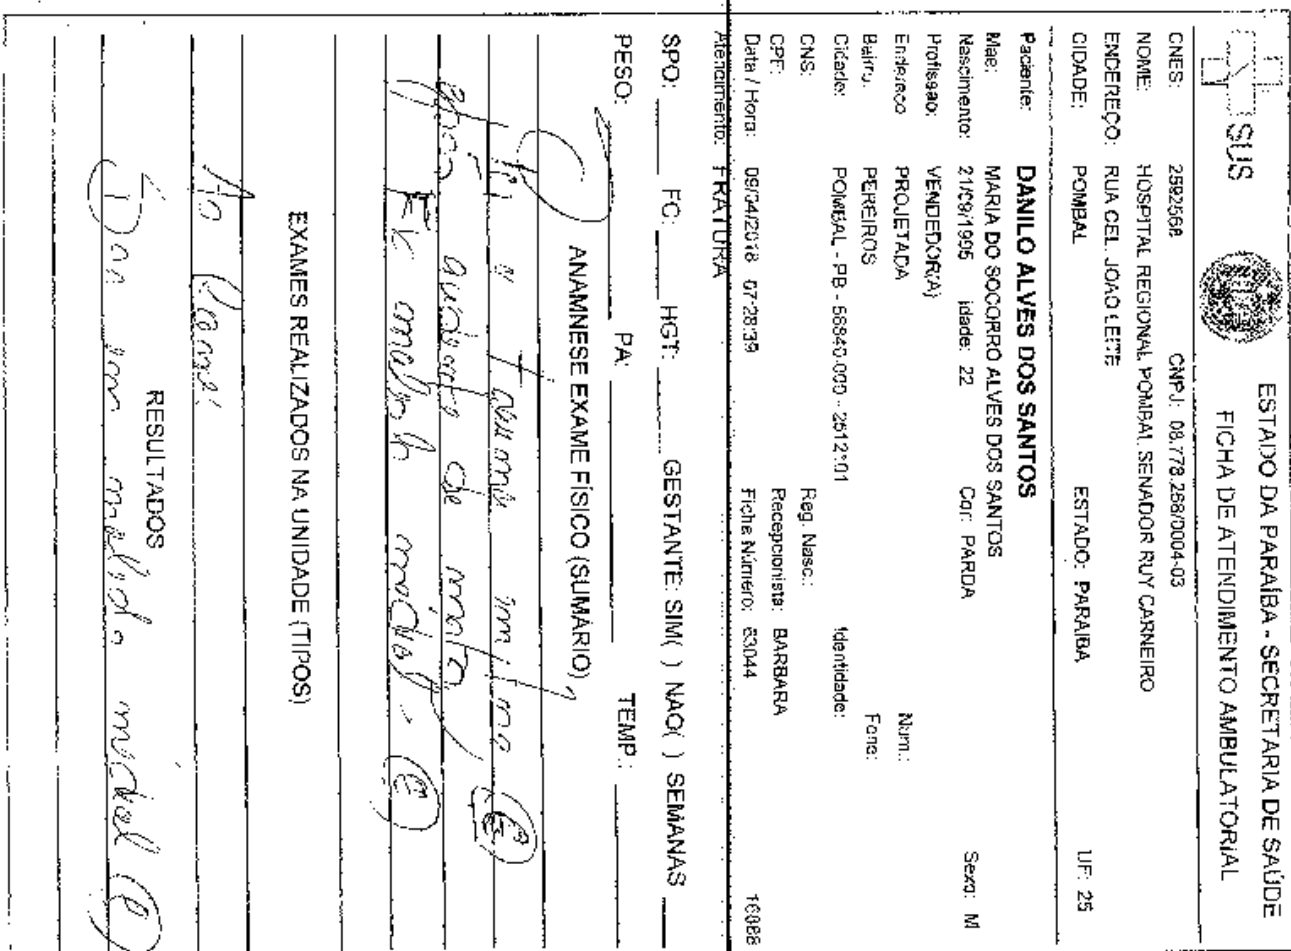 SUS
ESTADO DA PARAÍBA - SECRETARIA DE SAÚDE
FICHA DE ATENDIMENTO AMBULATORIAL
CNES: 2592568 CNPJ: 08.778.268/0004-03
NOME: HOSPITAL REGIONAL POMBAL SENADOR RUY CARNEIRO
ENDEREÇO: RUA CEL. JOAO LEITE
CIDADE: POMBAL ESTADO: PARAIBA UF: 25
Paciente: DANILO ALVES DOS SANTOS
Mae: MARIA DO SOCORRO ALVES DOS SANTOS
Nascimento: 21/09/1995 Idade: 22 Cor: PARDA Sexo: M
Profissao: VENDEDOR(A)
Endereco PROJETADA Num.:
Bairro: PEREIROS Fone:
Cidade: POMBAL - PB - 58840-000 - 2512101
CNS: Reg. Nasc.: Identidade:
CPF: Recepcionista: BARBARA
Data / Hora: 09/04/2018 07:28:39 Ficha Número: 63044 16988
Atendimento: FRATURA
SPO: FC: HGT: GESTANTE: SIM( ) NAO( ) SEMANAS
PESO: PA: TEMP.:
ANAMNESE EXAME FÍSICO (SUMÁRIO)
trauma
queda de moto
(E)
EXAMES REALIZADOS NA UNIDADE (TIPOS)
RESULTADOS